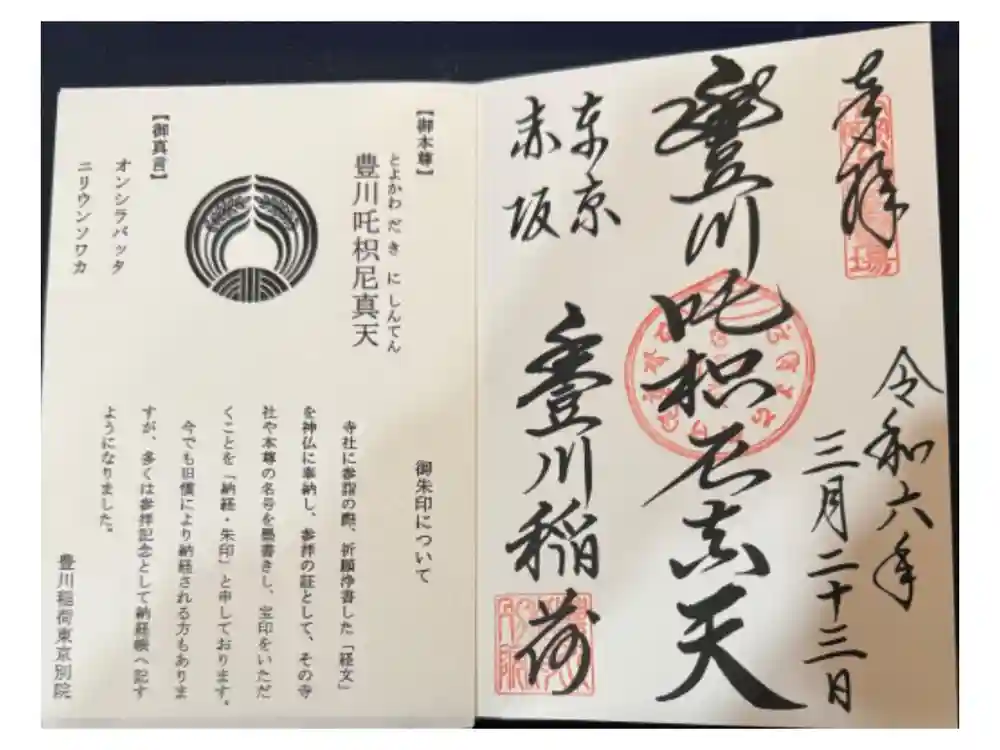 奉拝
令和六年
三月二十三日
豐川吒枳尼真天
東京
赤坂
豊川稲荷
【御本尊】
とよかわ だ き に しんてん
豊川吒枳尼真天
【御真言】
オンシラバッタ
ニリウンソワカ
御朱印について
寺社に参詣の際、祈願浄書した「経文」
を神仏に奉納し、参拝の証として、その寺
社や本尊の名号を墨書きし、宝印をいただ
くことを「納経・朱印」と申しております。
今でも旧慣により納経される方もありま
すが、多くは参拝記念として納経帳へ記す
ようになりました。
豊川稲荷東京別院